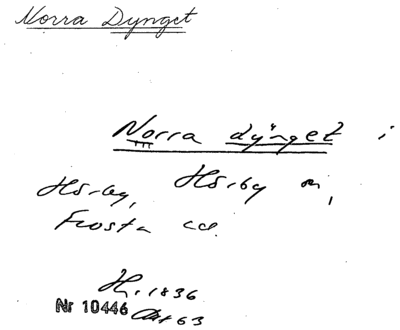 Norra Dynget
Norra dynget i
Hörby, Hörby sn,
Frosta hd.
H. 1836
Nr 10446 Akt 63